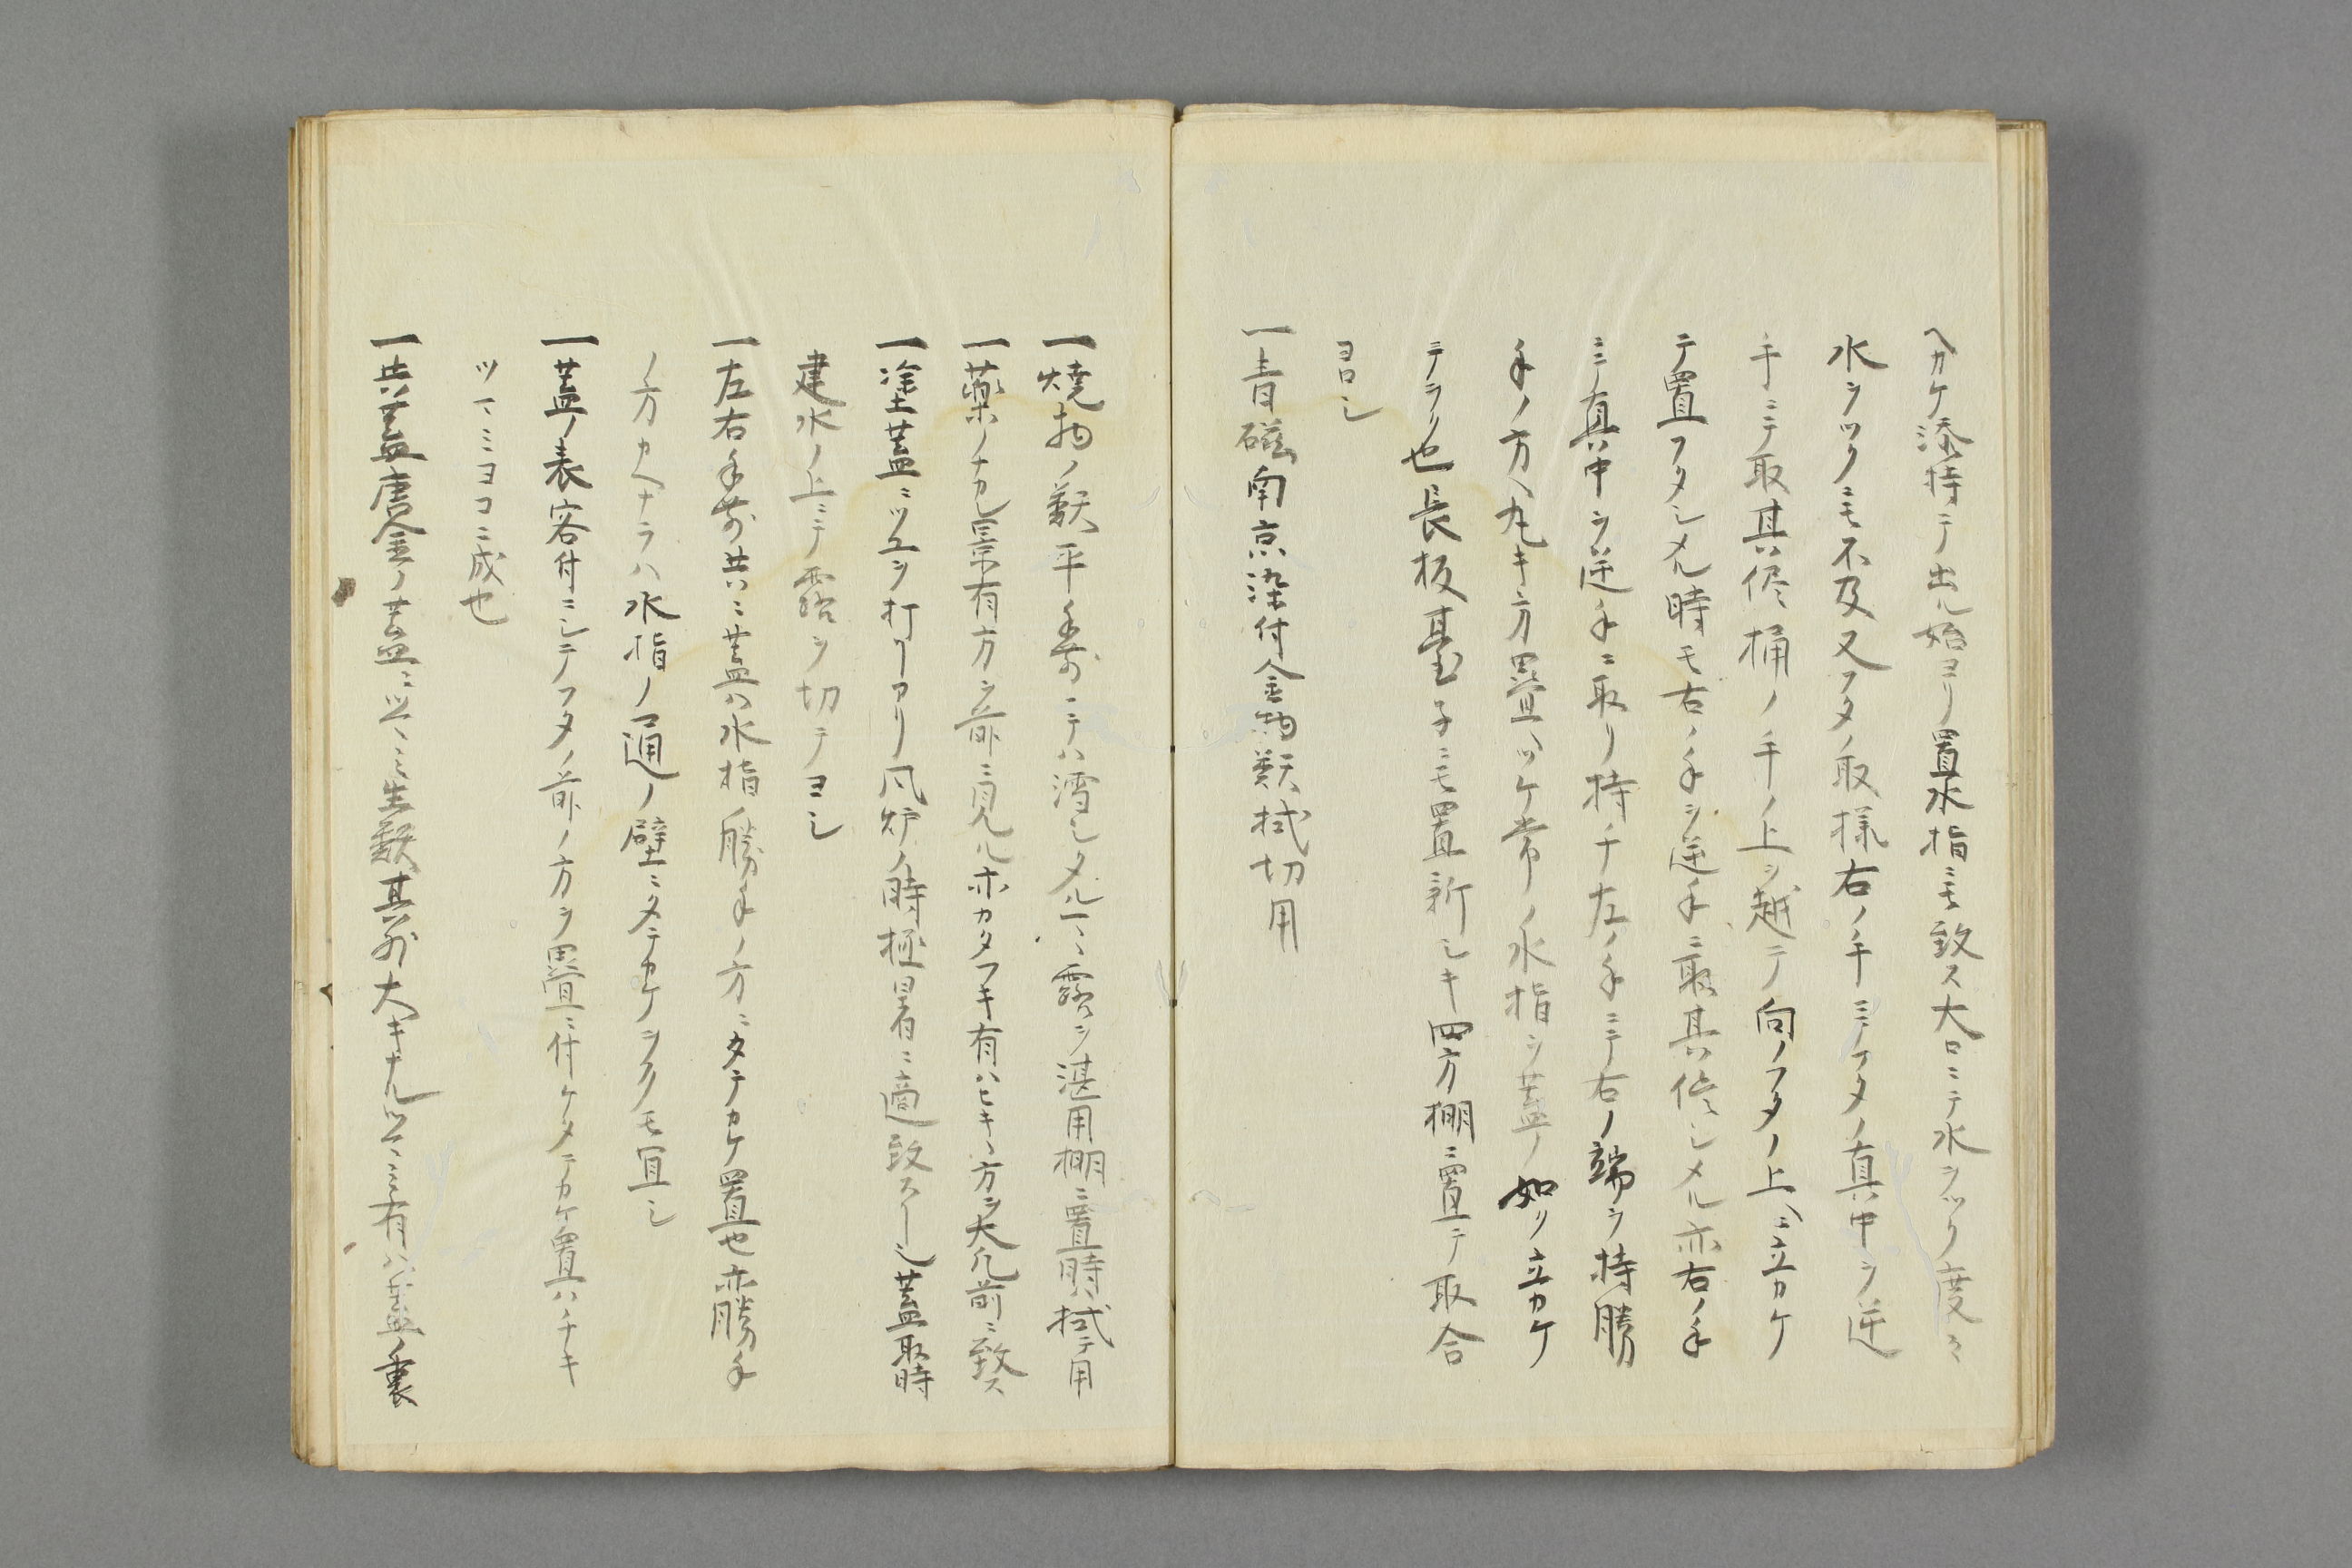 ヘカケ添持ニテ出ル始ヨリ置水指ニモ致ス大口ニテ水ヲツク度々
水ヲツクニモ不及又フタノ取様右ノ手ニテフタノ真中ヲ逆
手ニテ取其侭桶ノ手ノ上ヲ越テ向ノフタノ上ヘ立カケ
テ置フタシメル時モ右ノ手ヲ逆手ニ取其侭シメル亦右ノ手
ニテ真中ヲ逆手ニ取リ持チ左ノ手ニテ右ノ端ヲ持勝
手ノ方ヘ丸キ方畳ヘツケ常ノ水指ノ蓋ノ如ク立カケ
テヲク也長板台子ニモ置新シキ四方棚ニ置テ取合
ヨロシ
一青磁南京染付金物類拭切用
一焼物ノ類平手前ニテハ濡シタル一ニ露ヲ湛用棚ニ置時ハ拭テ用
一薬ノナカレ景有方ヲ前ニ見ル亦カタフキ有ハヒキヽ方ヲ大凡前ニ致ス
一塗蓋ニツユヲ打コトアリ風炉ノ時極暑ニ適致スヘシ蓋取時
建水ノ上ニテ露ヲ切テヨシ
一左右手前共ニ蓋ハ水指ノ勝手ノ方ニタテカケ置也亦勝手
ノ方カヘナラハ水指ノ通ノ壁ニタテカケヲクモ宜シ
一蓋ノ表客付ニシテフタノ前ノ方ヲ畳ニ付ケタテカケ置ハチキ
ツマミヨコニ成也
一共蓋唐金ノ蓋ニツマミ生類其外大キナルツマミ有ハ蓋ノ裏